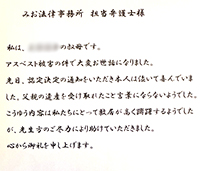 みお法律事務所 担当弁護士様
私は、の叔母です。
アスベスト被害の件で大変お世話になりました。
先日、認定決定の通知をいただき本人は泣いて喜んでいま
した。父親の遺産を受け取れたこと言葉にならないようでした。
こうゆう内容は私たちにとって敷居が高く躊躇するようでした
が、先生方のご尽力により助けていただきました。
心から御礼を申し上げます。